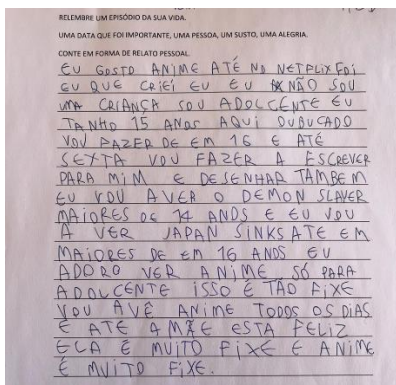 RELEMBRE UM EPISÓDIO DA SUA VIDA.
UMA DATA QUE FOI IMPORTANTE, UMA PESSOA, UM SUSTO, UMA ALEGRIA.
CONTE EM FORMA DE RELATO PESSOAL.
EU GOSTO ANIME ATÉ NO NETFLIX FOI
EU QUE CRIEI EU EU NÃO SOU
UMA CRIANÇA SOU ADOLCENTE EU
TANHO 15 ANOS AQUI DUBUCADO
VOU FAZER DE EM 16 E ATÉ
SEXTA VOU FAZER A ESCREVER
PARA MIM E DESENHAR TAMBEM
EU VOU AVER O DEMON SLAVER
MAIORES DE 14 ANOS E EU VOU
A VER JAPAN SINKS ATE EM
MAIORES DE EM 16 ANOS EU
ADORO VER ANIME SÓ PARA
ADOLCENTE ISSO É TÃO FIXE
VOU AVÊ ANIME TODOS OS DIAS
E ATÉ A MÃE ESTA FELIZ
ELA É MUITO FIXE E ANIME
É MUITO FIXE.